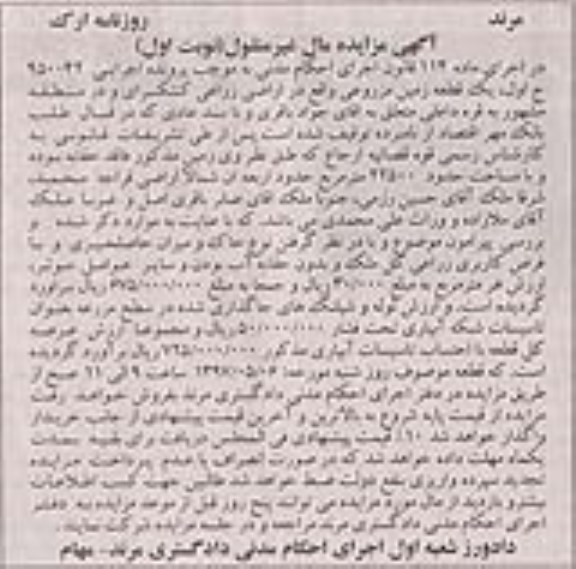 مرند روزنامه ارک
آگهی مزایده مال غیرمنقول(نوبت اول)
در اجرای ماده ۱۱۴ قانون اجرای احکام مدنی به موجب پرونده اجرایی ۹۵۰۰۴۲
ج اول، یک قطعه زمین مزروعی واقع در اراضی زراعی کشکسرای و در منطقه
مشهور به قره داخلی متعلق به آقای جواد باقری و با سند عادی که در قبال طلب
بانک مهر اقتصاد از نامبرده توقیف شده است پس از طی تشریفات قانونی به
کارشناس رسمی قوه قضائیه ارجاع که طبق نظر وی زمین مذکور فاقد حقابه بوده
و با مساحت حدود ۲۲۵۰۰ مترمربع حدود اربعه آن شمالا اراضی
شرقا ملک آقای حسین رزمی، جنوبا ملک آقای صفر باقری اصل و غربا ملک
آقای ملازاده و وراث علی محمدی می باشد، که با عنایت به موارد ذکر شده و
بررسی پیرامون موضوع و با در نظر گرفتن نوع خاک و میزان حاصلخیزی و با
فرض کاربری زراعی کل ملک و بدون حقابه آب بودن و سایر عوامل موثر،
ارزش هر مترمربع به مبلغ ۳۰/۰۰۰ ریال و جمعا به مبلغ ۶۷۵/۰۰۰/۰۰۰ ریال برآورد
گردیده است. و ارزش لوله و شیلنگ های جاگذاری شده در سطح مزرعه بعنوان
تاسیسات شبکه آبیاری تحت فشار ۵۰/۰۰۰/۰۰۰ ریال و مجموعا ارزش عرصه
کل قطعه با احتساب تاسیسات آبیاری مذکور ۷۲۵/۰۰۰/۰۰۰ ریال برآورد گردیده
است. که قطعه موصوف روز شنبه مورخه ۱۳۹۷/۰۵/۰۶ ساعت ۹ الی ۱۱ صبح از
طریق مزایده در دفتر اجرای احکام مدنی دادگستری مرند بفروش خواهد رفت
مزایده از قیمت پایه شروع به بالاترین و آخرین قیمت پیشنهادی از جانب خریدار
واگذار خواهد شد ۱۰٪ قیمت پیشنهادی فی المجلس دریافت برای بقیه مدت
یکماه مهلت داده خواهد شد که در صورت انصراف یا عدم پرداخت مزایده
تجدید سپرده واریزی بنفع دولت ضبط خواهد شد طالبین جهت کسب اطلاعات
بیشتر و بازدید از مال مورد مزایده می توانند پنج روز قبل از موعد مزایده به دفتر
اجرای احکام مدنی دادگستری مرند مراجعه و در جلسه مزایده شرکت نمایند.
دادورز شعبه اول اجرای احکام مدنی دادگستری مرند- مهام